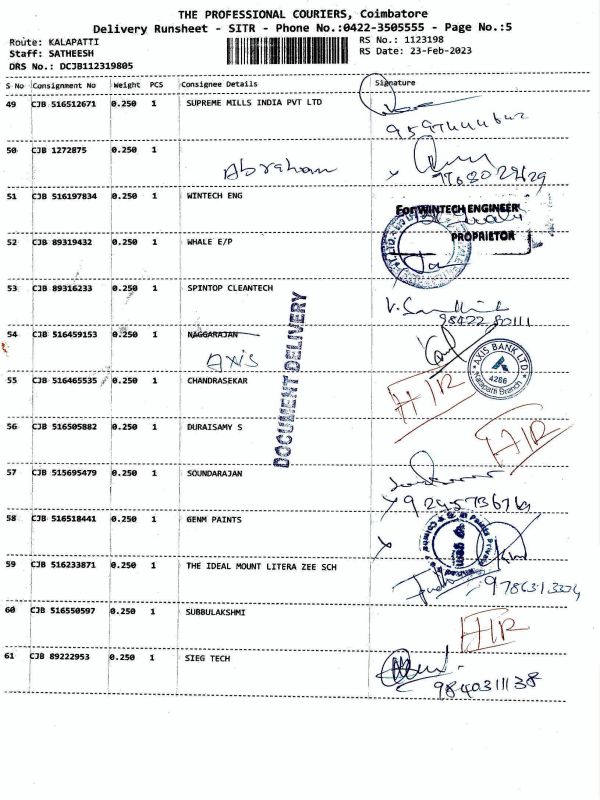 THE PROFESSIONAL COURIERS, Coimbatore
Delivery Runsheet - SITR - Phone No.:0422-3505555 - Page No.:5
Route: KALAPATTI RS No.: 1123198
Staff: SATHEESH RS Date: 23-Feb-2023
DRS No.: DCJB112319805
S No Consignment No Weight PCS Consignee Details Signature
49 CJB 516512671 0.250 1 SUPREME MILLS INDIA PVT LTD
50 CJB 1272875 0.250 1
Abraham
51 CJB 516197834 0.250 1 WINTECH ENG
For WINTECH ENGINEER
PROPRIETOR
52 CJB 89319432 0.250 1 WHALE E/P
53 CJB 89316233 0.250 1 SPINTOP CLEANTECH
98422 80111
DOCUMENT DELIVERY
54 CJB 516459153 0.250 1 NAGGARAJAN
AXIS
AXIS BANK LTD.
4266
Kalapatti Branch
55 CJB 516465535 0.250 1 CHANDRASEKAR
HIR
56 CJB 516505882 0.250 1 DURAISAMY S
HIR
57 CJB 515695479 0.250 1 SOUNDARAJAN
58 CJB 516518441 0.250 1 GENM PAINTS
gem
59 CJB 516233871 0.250 1 THE IDEAL MOUNT LITERA ZEE SCH
60 CJB 516550597 0.250 1 SUBBULAKSHMI
HIR
61 CJB 89222953 0.250 1 SIEG TECH
9840311138